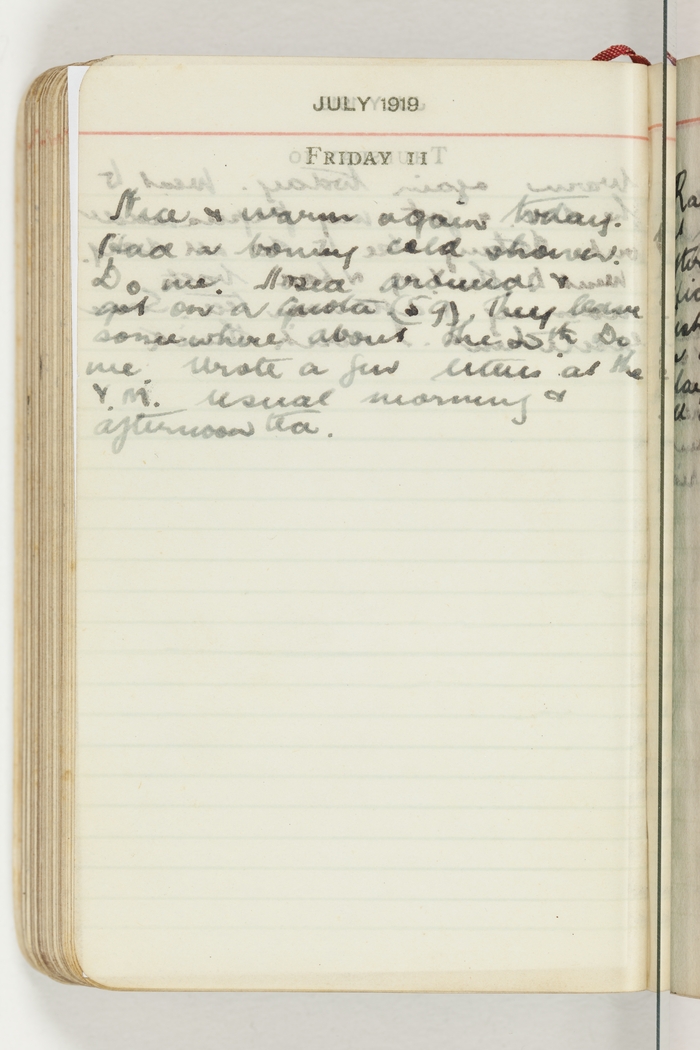 JULY 1919
FRIDAY 11
Nice & warm again today.
Had a bonny cold shower.
Do me. Nosed around &
got on a Quota (59). They leave
somewhere about the 25th Do
me. Wrote a few letters at the
Y.M. Usual morning &
afternoon tea.